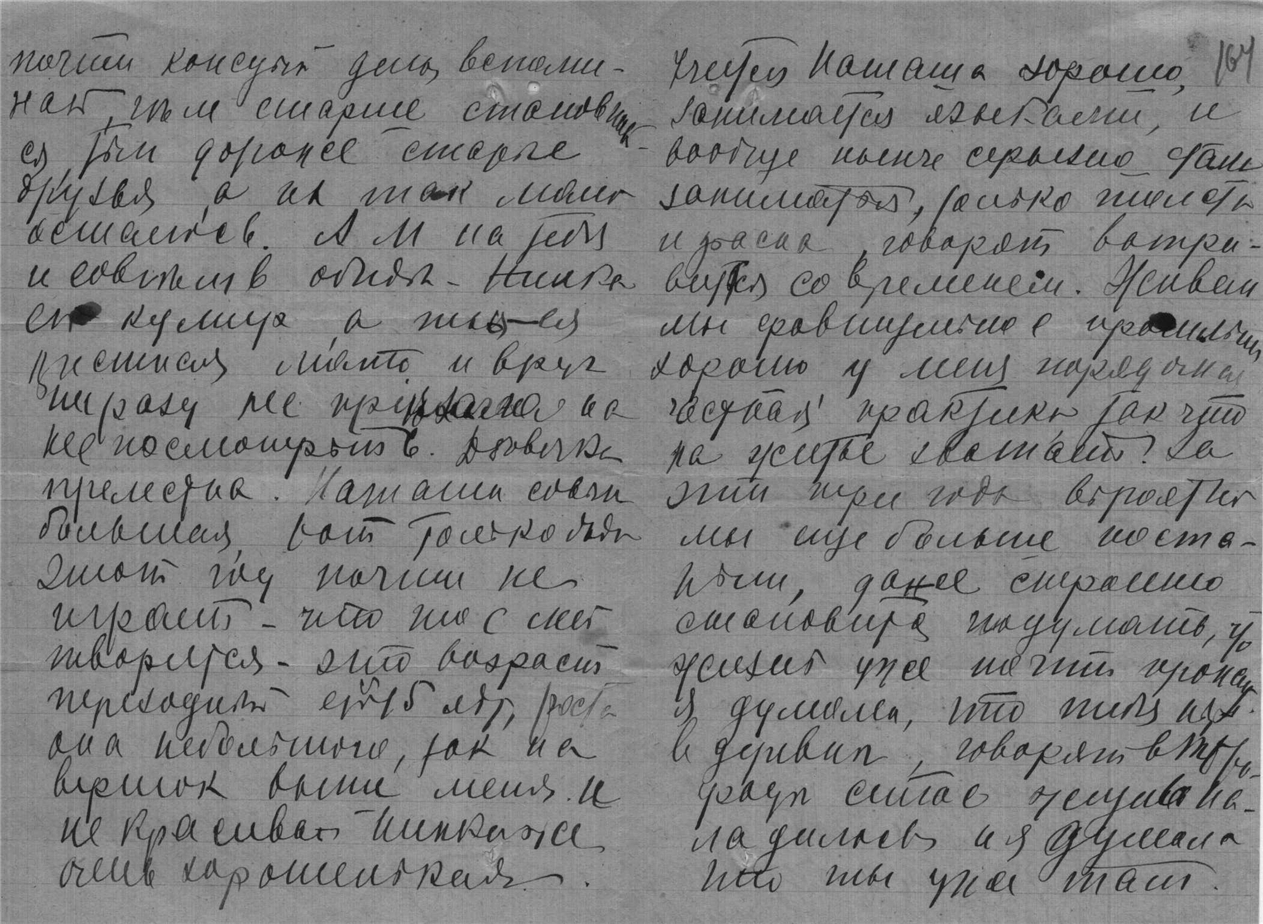 почти каждый день вспоми-
наю, чем старше становишь-
ся тем дороже старые
друзья а их так мало
осталось. А М на тебя
и совсем в обиде - Нинка
ее кумир, а ты ея
и вдруг
ни разу не на
нее посмотреть. Девочка
прелестна. Наташа совсем
большая, вот только
этот год почти не
играет - что то с ней
творится - это возраст
переходный ей 15 лет, роста
она небольшого, так на
вершок выше меня и
не красивая Нинка же
очень хорошенькая.
Учится Наташа хорошо, 164
занимается языками, и
вообще нынче серьезно стала
заниматься, только
и , говорят
со временем. Живем
мы сравнительно с прошлым
хорошо у меня порядочная
частная практика, так что
на житье хватает. За
эти три года вероятно
мы еще больше поста-
рели, даже страшно
становится подумать, что
жизнь уже почти
Я думала, что тебя нет
в , говорят в
сейчас жизнь на-
ладилась и я думала
что ты уже там.